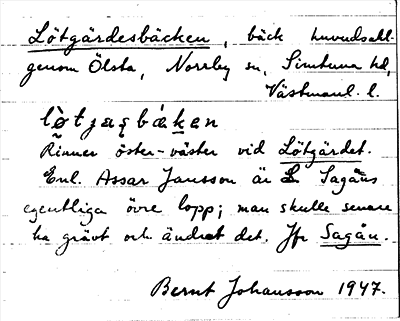 Lötgärdesbäcken, bäck huvudsakl.
genom Ölsta, Norrby sn, Simtuna hd,
Västmanl. l.
lò̤tjaʂbǻkan
Rinner öster-väster vid Lötgärdet.
Enl. Assar Jansson är L Sagåns
egentliga övre lopp; man skulle senare
ha grävt och ändrat det. Jfr Sagån.
Bernt Johansson 1947.